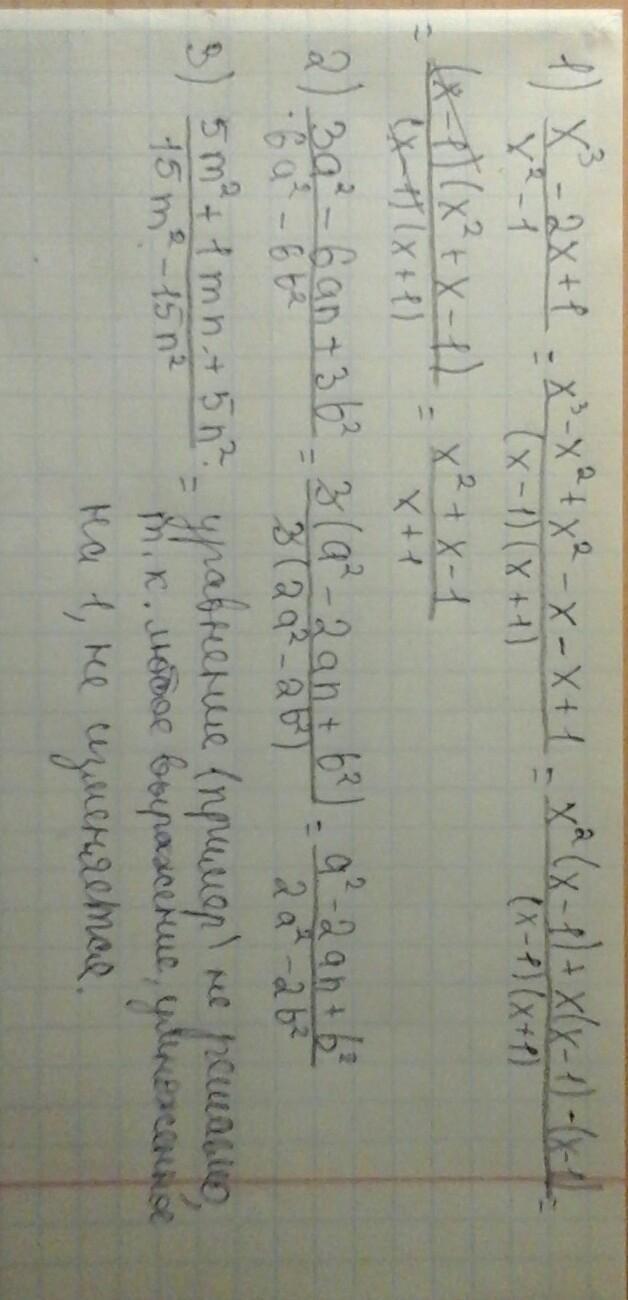 1) x³ - 2x + 1 / x² - 1 = x³ - x² + x² - x - x + 1 / (x - 1)(x + 1) = x²(x - 1) + x(x - 1) - (x - 1) / (x - 1)(x + 1) =
= (x - 1)(x² + x - 1) / (x - 1)(x + 1) = x² + x - 1 / x + 1
2) 3a² - 6an + 3b² / 6a² - 6b² = 3(a² - 2an + b²) / 3(2a² - 2b²) = a² - 2an + b² / 2a² - 2b²
3) 5m² + 1mn + 5n² / 15m² - 15n² = уравнение (пример) не решаемо,
т.к. любое выражение, умноженное
на 1, не изменяется.